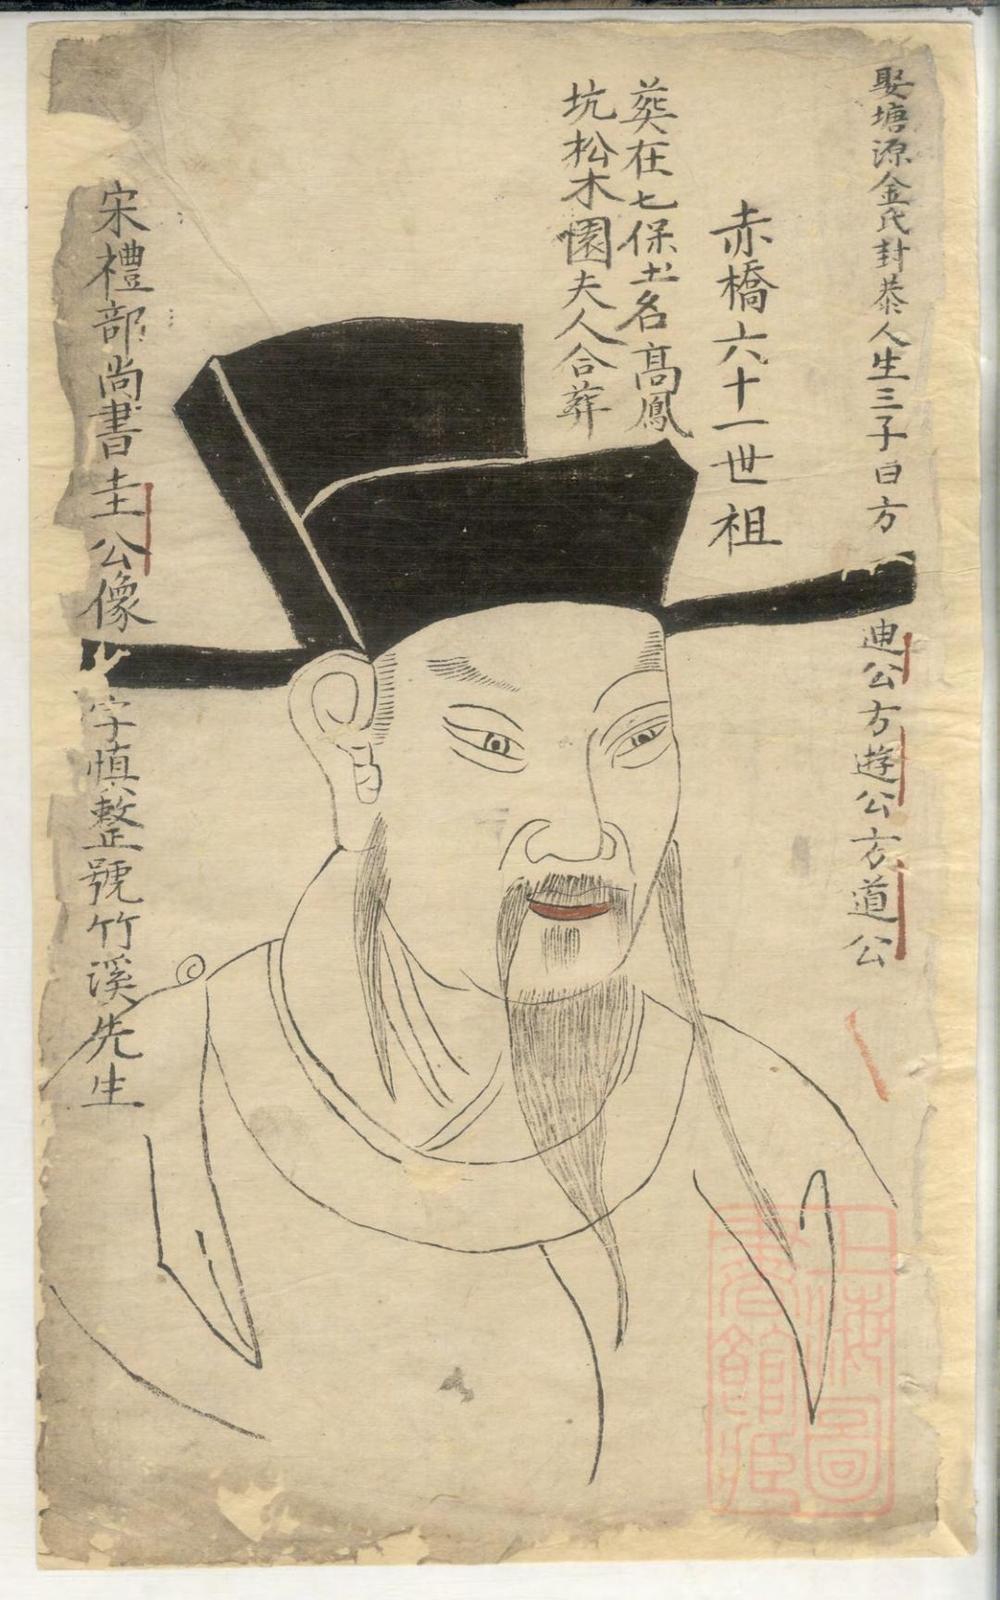 娶塘源金氏封恭人生三子曰方
迪公方遊公方道公
赤橋六十一世祖
葬在七保土名高鳳
坑松木園夫人合葬
宋禮部尚書圭公像
字慎整號竹溪先生
上海圖
書館藏